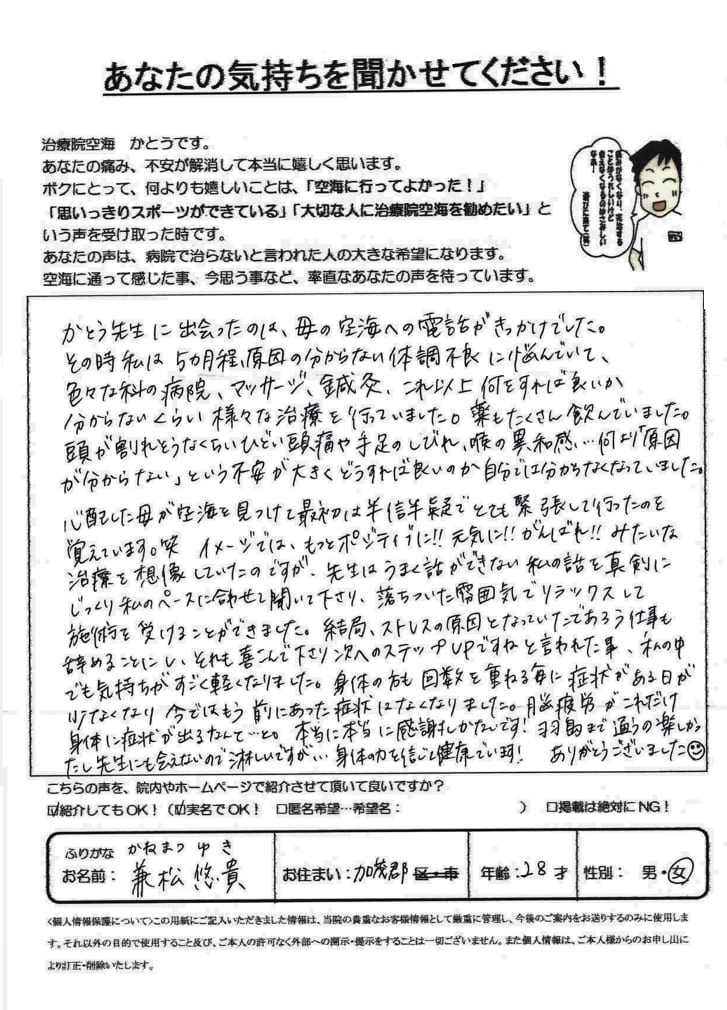 あなたの気持ちを聞かせてください！
治療院空海　かとうです。
あなたの痛み、不安が解消して本当に嬉しく思います。
ボクにとって、何よりも嬉しいことは、「空海に行ってよかった！」
「思いっきりスポーツができている」「大切な人に治療院空海を勧めたい」と
いう声を受け取った時です。
あなたの声は、病院で治らないと言われた人の大きな希望になります。
空海に通って感じた事、今思う事など、率直なあなたの声を待っています。
かとう先生に出会ったのは、母の空海への電話がきっかけでした。
その時私は5カ月程、原因の分からない体調不良に悩んでいて、
色々な科の病院、マッサージ、鍼灸、これ以上何をすれば良いか
分からないくらい様々な治療を行っていました。薬もたくさん飲んでいました。
頭が割れそうなくらいひどい頭痛や手足のしびれ、喉の異和感…何より「原因
が分からない」という不安が大きくどうすれば良いのか自分では分からなくなっていました。
心配した母が空海を見つけて最初は半信半疑でとても緊張して行ったのを
覚えています。笑　イメージでは、もっとポジティブに!!元気に!!がんばれ!!みたいな
治療を想像していたのですが、先生はうまく話ができない私の話を真剣に
じっくり私のペースに合わせて聞いて下さり、落ちついた雰囲気でリラックスして
施術を受けることができました。結局、ストレスの原因となっていたであろう仕事も
辞めることにし、それも喜んで下さり次へのステップUPですねと言われた事、私の中
でも気持ちがすごく軽くなりました。身体の方も回数を重ねる毎に症状がある日が
少なくなり今ではもう前にあった症状はなくなりました。脳疲労がこれだけ
身体に症状が出るなんて…と。本当に本当に感謝しかないです!羽島まで通うの楽しか
たし先生にも会えないので淋しいですが…身体の力を信じて健康でいます!　ありがとうございました
こちらの声を、院内やホームページで紹介させて頂いて良いですか？
☑紹介してもOK！（☑実名でOK！　□匿名希望…希望名：　　　　　）　□掲載は絶対にNG！
ふりがな　かねまつ　ゆき
お名前：　兼松　悠貴
お住まい：加茂郡　区・市
年齢：28才
性別：　男・女
<個人情報保護について>この用紙にご記入いただきました情報は、当院の貴重なお客様情報として厳重に管理し、今後のご案内をお送りするのみに使用しま
す。それ以外の目的で使用すること及び、ご本人の許可なく外部への開示・提示をすることは一切ございません。また個人情報は、ご本人様からのお申し出に
より訂正・削除いたします。